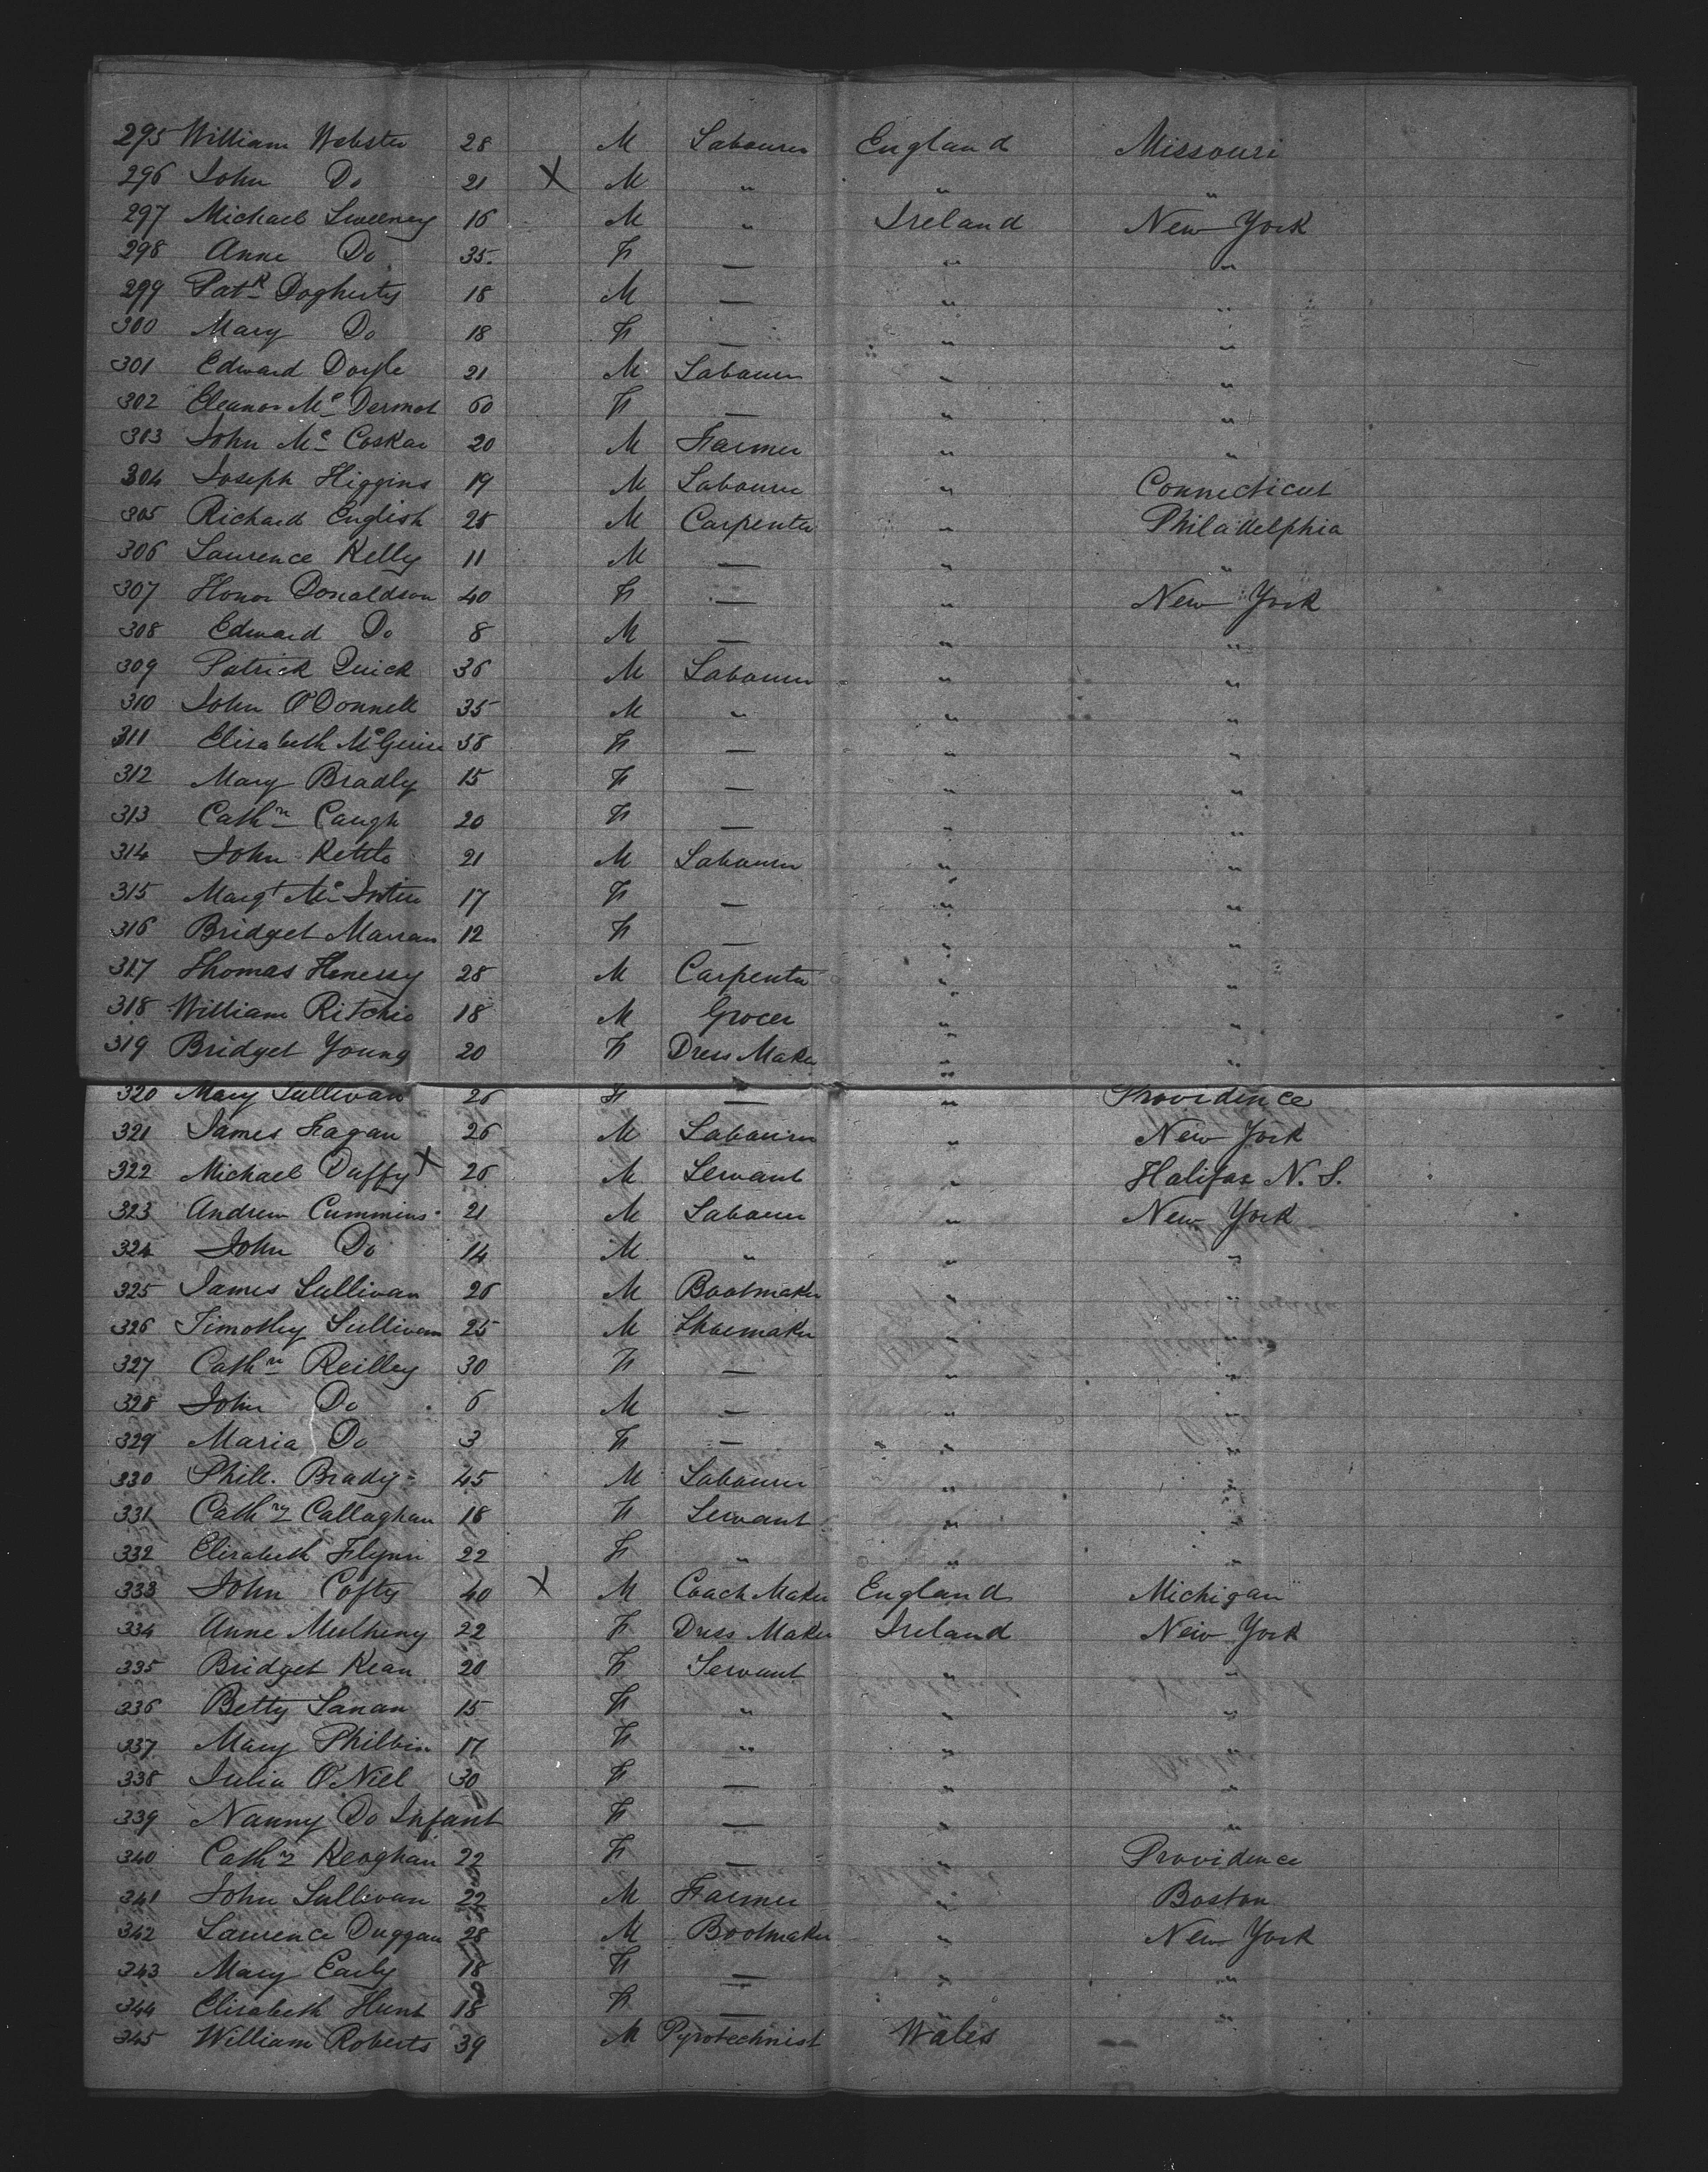 295 William Webster 28 M Labourer England Missouri
296 John Do 21 X M " " "
297 Michael Sweeney 16 M " Ireland New York
298 Anne Do 35 F — " "
299 Patk Dogherty 18 M — " "
300 Mary Do 18 F — " "
301 Edward Doyle 21 M Labourer " "
302 Eleanor Mc Dermot 60 F — " "
303 John Mc Coskar 20 M Farmer " "
304 Joseph Higgins 19 M Labourer " Connecticut
305 Richard English 25 M Carpenter " Philadelphia
306 Laurence Kelly 11 M — " "
307 Honor Donaldson 40 F — " New York
308 Edward Do 8 M — " "
309 Patrick Quick 36 M Labourer " "
310 John O'Donnell 35 M " " "
311 Elisabeth McGuire 38 F — " "
312 Mary Bradly 15 F — " "
313 Cathn Caugh 20 F — " "
314 John Kettle 21 M Labourer " "
315 Margt Mc Intire 17 F — " "
316 Bridget Marran 12 F — " "
317 Thomas Henessy 28 M Carpenter " "
318 William Ritchie 18 M Grocer " "
319 Bridget Young 20 F Dress Maker " "
320 Mary Sullivan 26 F — " Providence
321 James Fagan 26 M Labourer " New York
322 Michael Duffy X 26 M Servant " Halifax N. S.
323 Andrew Cummins 21 M Labourer " New York
324 John Do 14 M " " "
325 James Sullivan 26 M Bootmaker " "
326 Timothy Sullivan 25 M Shoemaker " "
327 Cathn Reilley 30 F — " "
328 John Do 6 M — " "
329 Maria Do 3 F — " "
330 Phill. Brady 45 M Labourer " "
331 Cathn Callaghan 18 F Servant " "
332 Elisabeth Flynn 22 F " " "
333 John Cofty 40 X M Coach Maker England Michigan
334 Anne Mulheny 22 F Dress Maker Ireland New York
335 Bridget Kean 20 F Servant " "
336 Betty Lanan 15 F " " "
337 Mary Philbin 17 F " " "
338 Julia O'Niel 30 F — " "
339 Nanny Do Infant F — " "
340 Cathn Keoghan 22 F — " Providence
341 John Sullivan 22 M Farmer " Boston
342 Laurence Duggan 28 M Bootmaker " New York
343 Mary Early 18 F — " "
344 Elisabeth Hunt 18 F — " "
345 William Roberts 39 M Pyrotechnist Wales